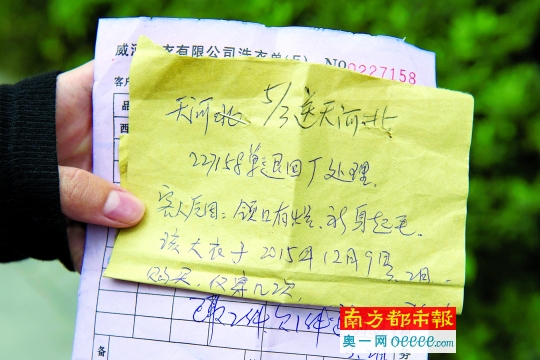 威洁洗衣有限公司洗衣单(E) No 0227158
客户
品
西
天河北 5/3送天河北
227158单退回厂处理.
客人反因：领口有烂、衣身起毛.
该大衣于2015年12月9号
购买，仅穿几次，
南方都市報
奥一网 oeeee.com